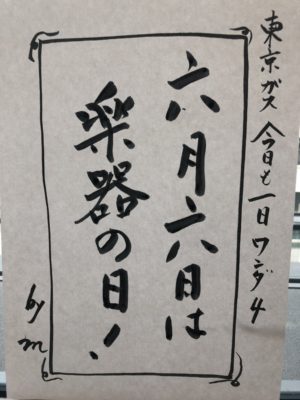 東京ガス 今日も一日ワンダ4
六月六日は
楽器の日!
by m